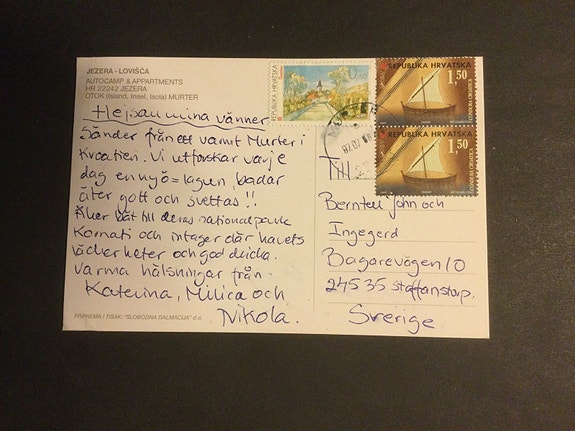 JEZERA - LOVIŠĆA
AUTOCAMP & APPARTMENTS
HR 22242 JEZERA
OTOK (Island, Insel, Isola) MURTER
Hejsan mina vänner
Sänder från ett varmt Murter i
Kroatien. Vi utforskar varje
dag en ny ö = lagun, badar
äter gott och svettas !!
Åker båt till deras nationalpark
Kornati och intager där havets
läckerheter och god dricka.
Varma hälsningar från
Katerina, Milica och
Nikola.
PRIPREMA I TISAK: "SLOBODNA DALMACIJA" d.d
REPUBLIKA HRVATSKA
REPUBLIKA HRVATSKA
1,50
REPUBLIKA HRVATSKA
1,50
Till
Berntell John och
Ingegerd
Bagarevägen 10
24535 Staffanstorp.
Sverige